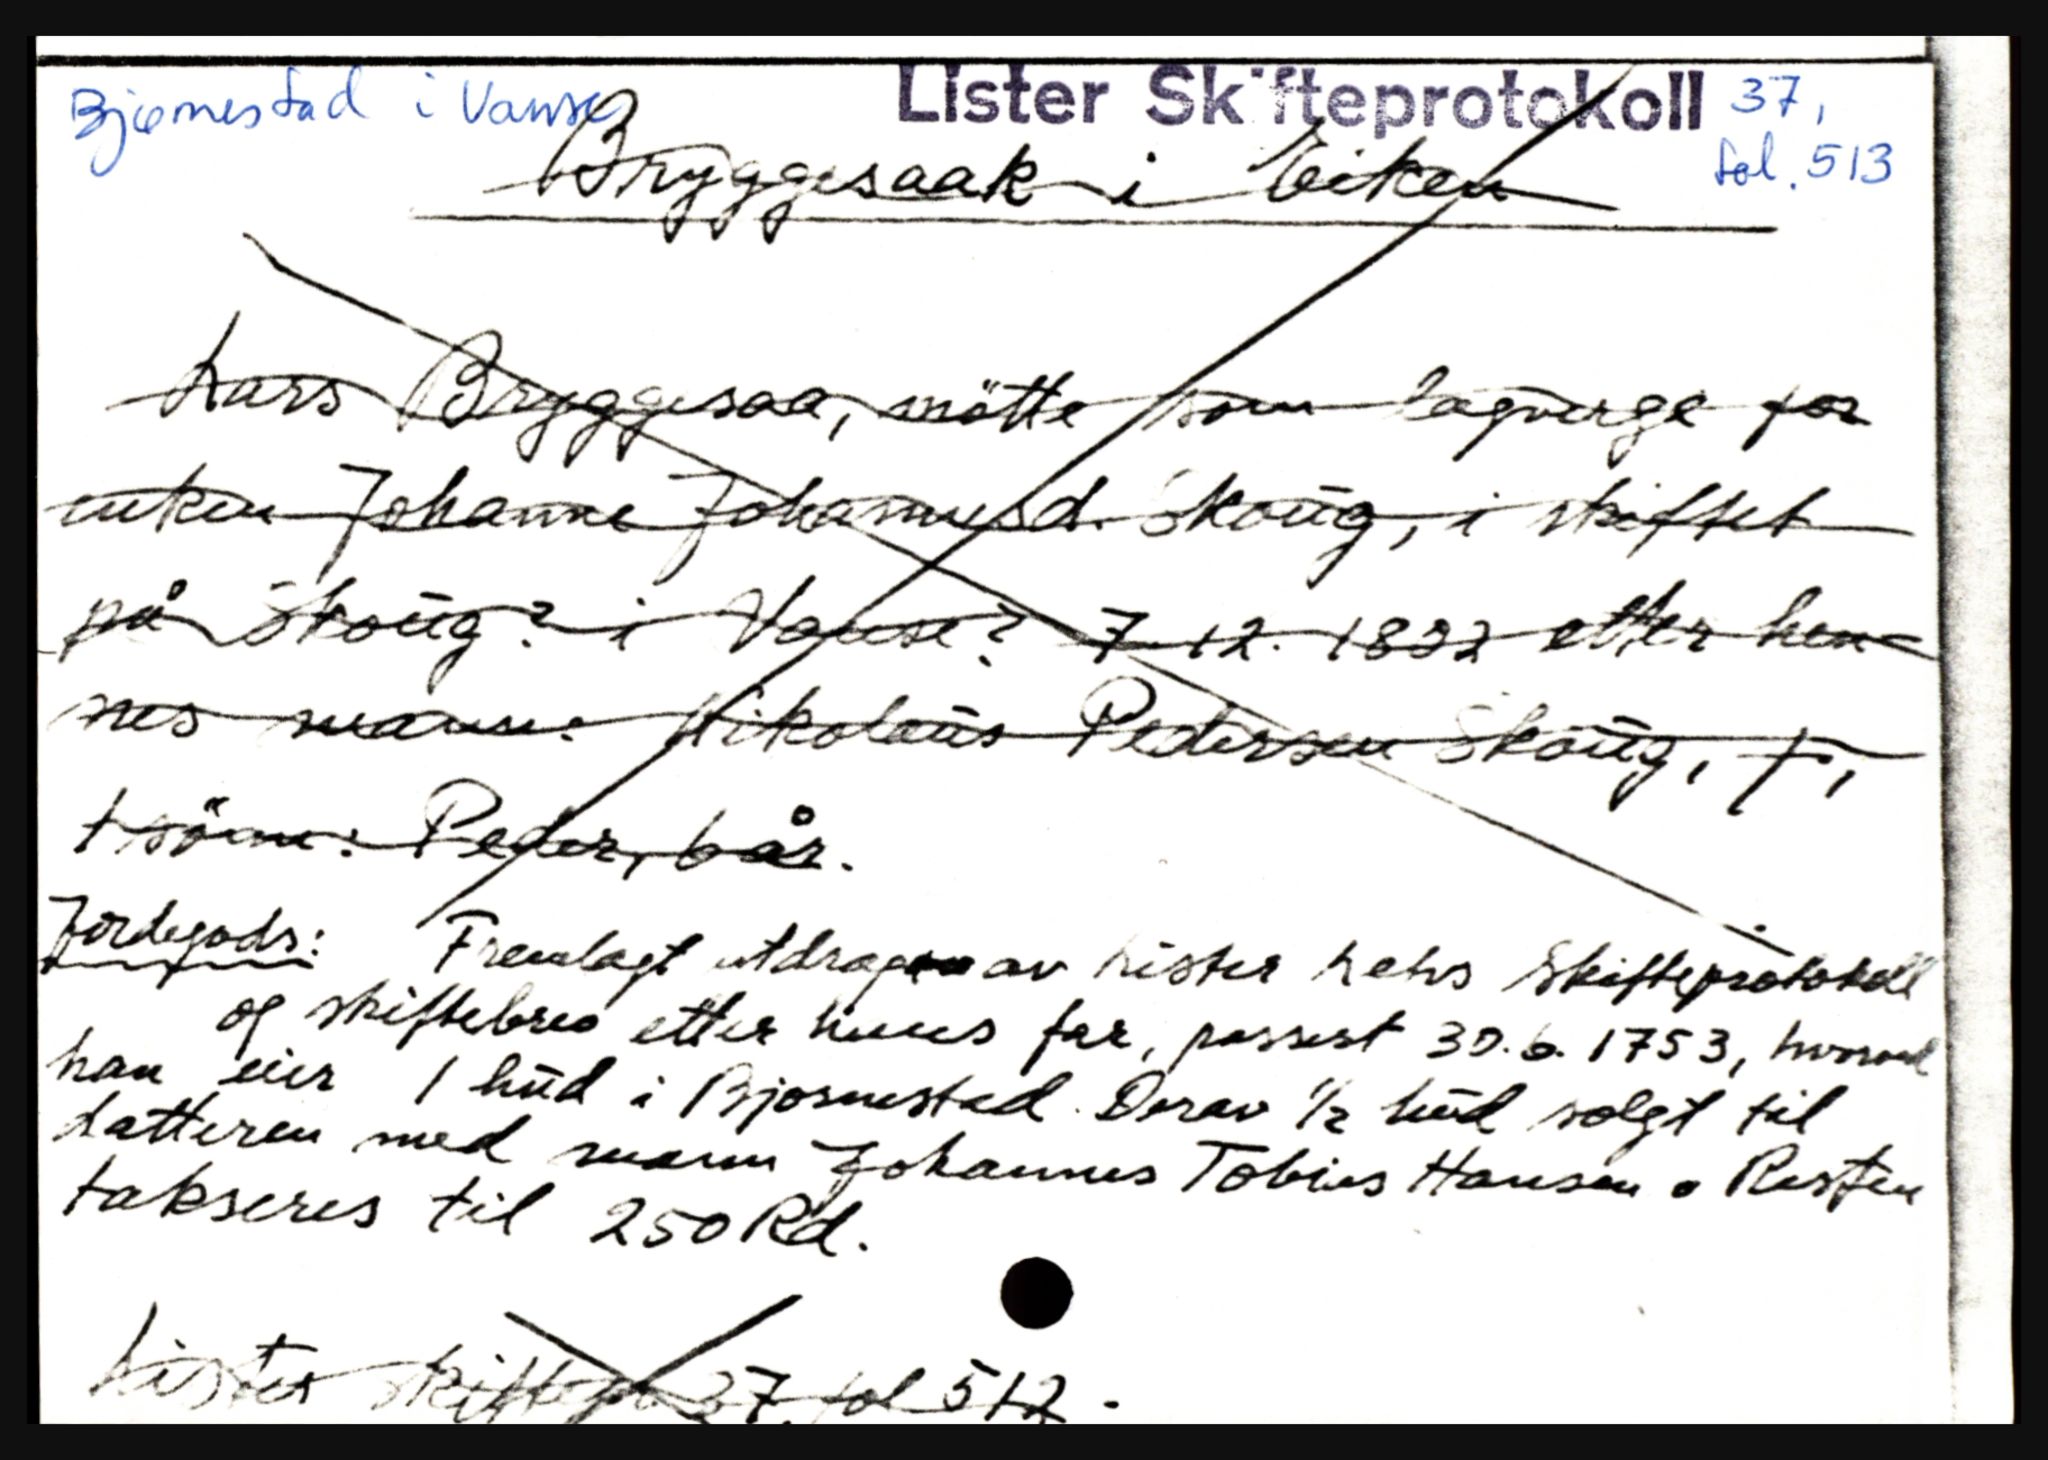 Bjørnestad i Vanse
Lister Skifteprotokoll 37,
fol. 513
Bryggesaak i Eiken
Lars Bryggesaa, mötte som lagverge for
enken Johanne Johannesd. Skoug, i skiftet
på Skoug? i Vanse? 7. 12. 1832 etter hen=
nes mann: Nikolaus Pedersen Skoug, †,
1 sönn: Peder, 6 år.
Jordegods: Fremlagt utdrag av Lister Lehs Skifteprotokoll
og skiftebrev etter hans far, passert 30.6.1753, hvorved
han eier 1 hud i Bjornestad. Derav 1/2 hud solgt til
datteren med mann Johannes Tobias Hansen. Resten
takseres til 250 Rd.
Lister skiftep. 37 fol 512.